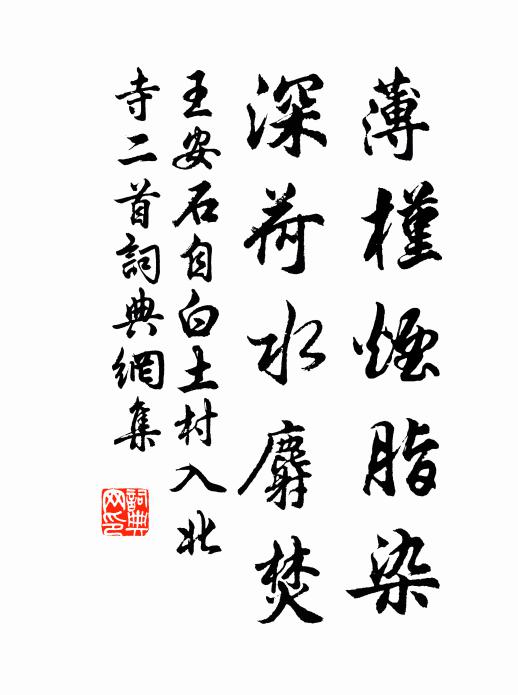 薄槿煙脂染
深荷水麝焚
王安石自白土村入北
寺二首詞典網集
詞典
网印